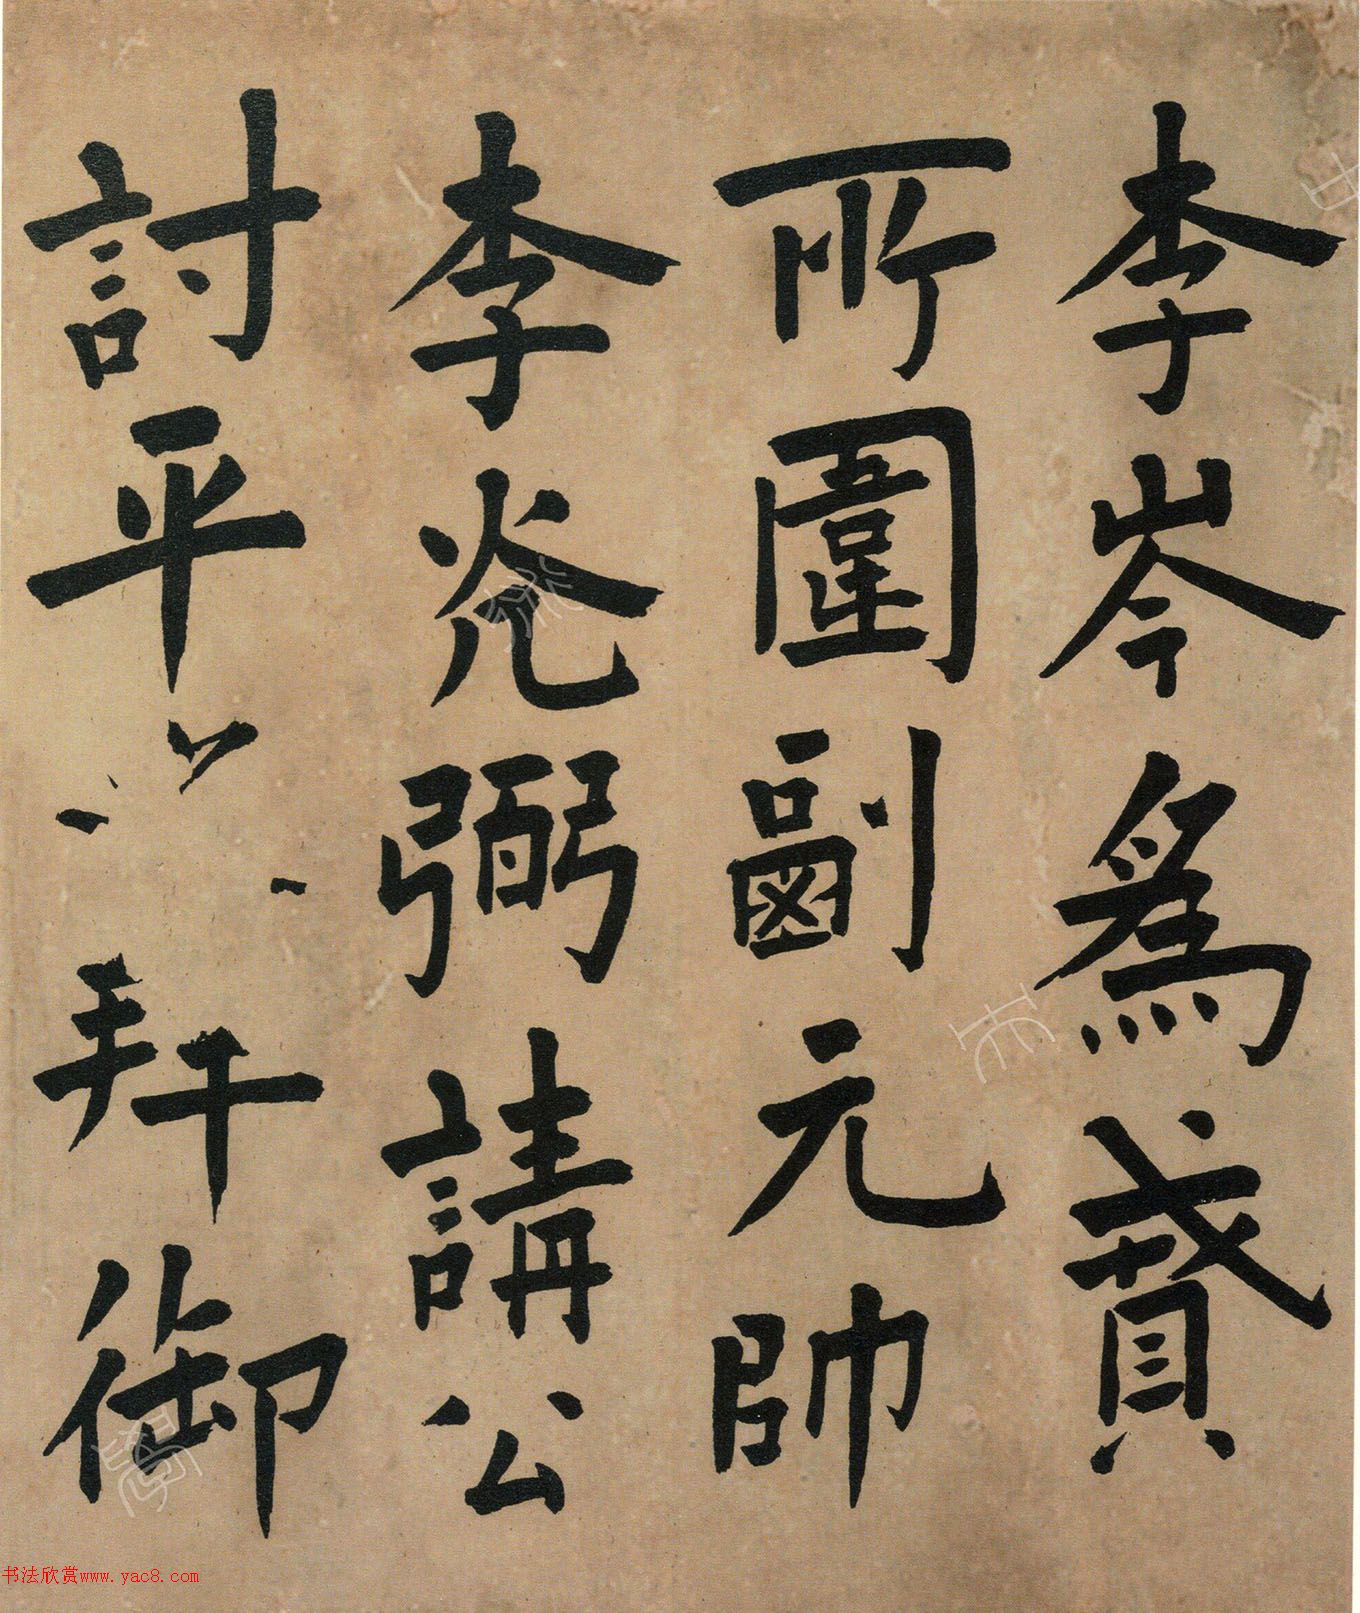 李岑為賊
所圍副元帥
李光弼請公
討平拜御
书法欣赏www.yac8.com